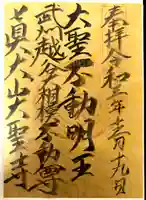 奉拝令和三年十二月十九日
大聖不動明王
武州越谷相模不動尊
真大山大聖寺